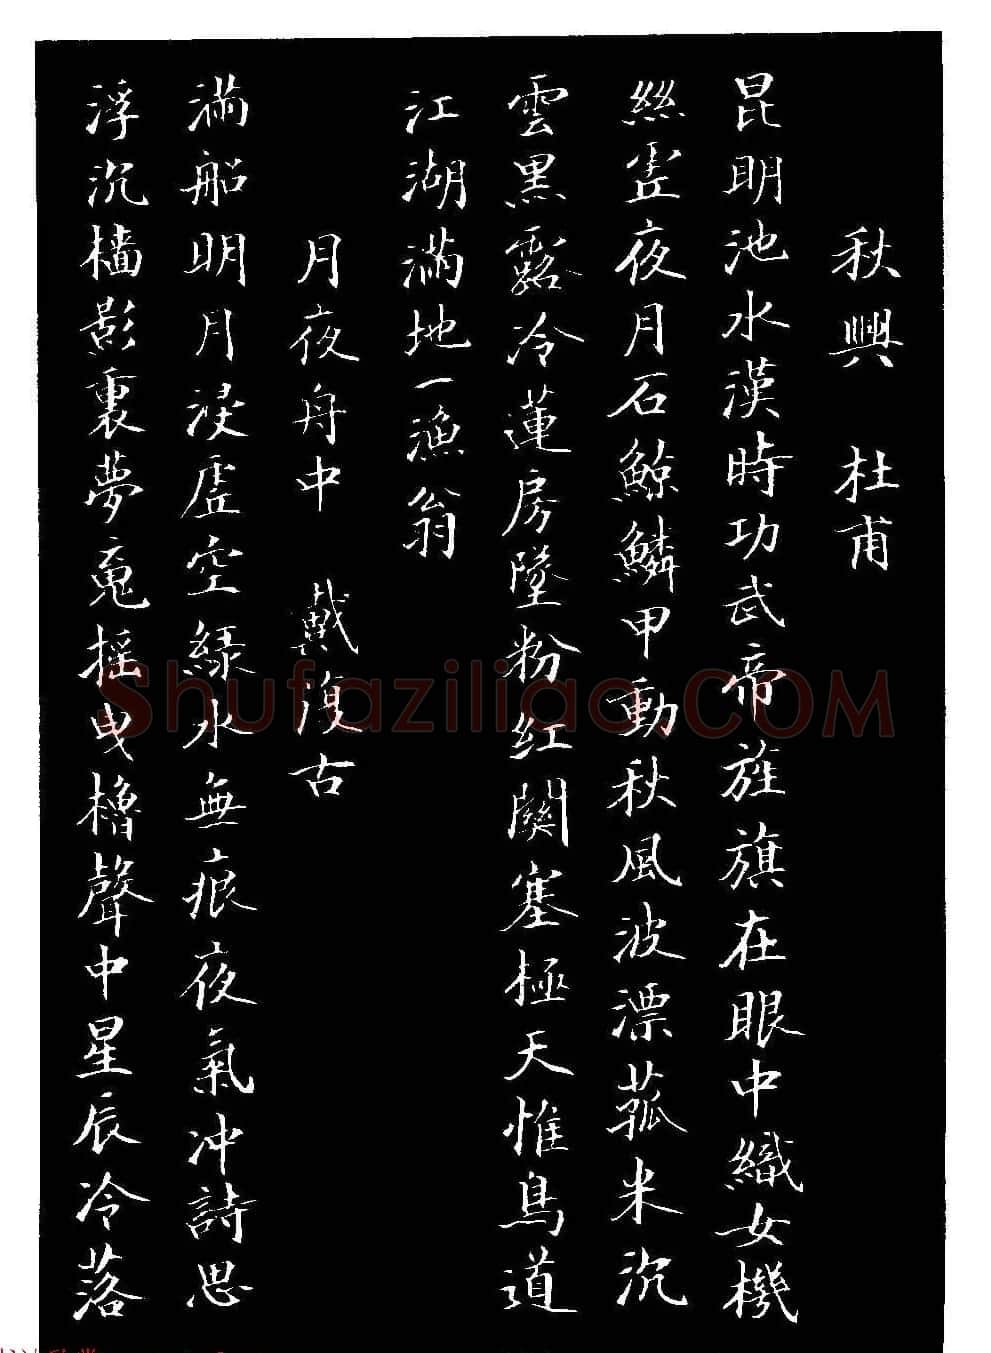 秋興 杜甫
昆明池水漢時功武帝旌旗在眼中織女機
絲虛夜月石鯨鱗甲動秋風波漂菰米沉
雲黑露冷蓮房墜粉紅關塞極天惟鳥道
江湖滿地一漁翁
月夜舟中 戴復古
滿船明月浸虛空綠水無痕夜氣冲詩思
浮沉檣影裏夢魂摇曳櫓聲中星辰冷落
Shufaziliao.COM